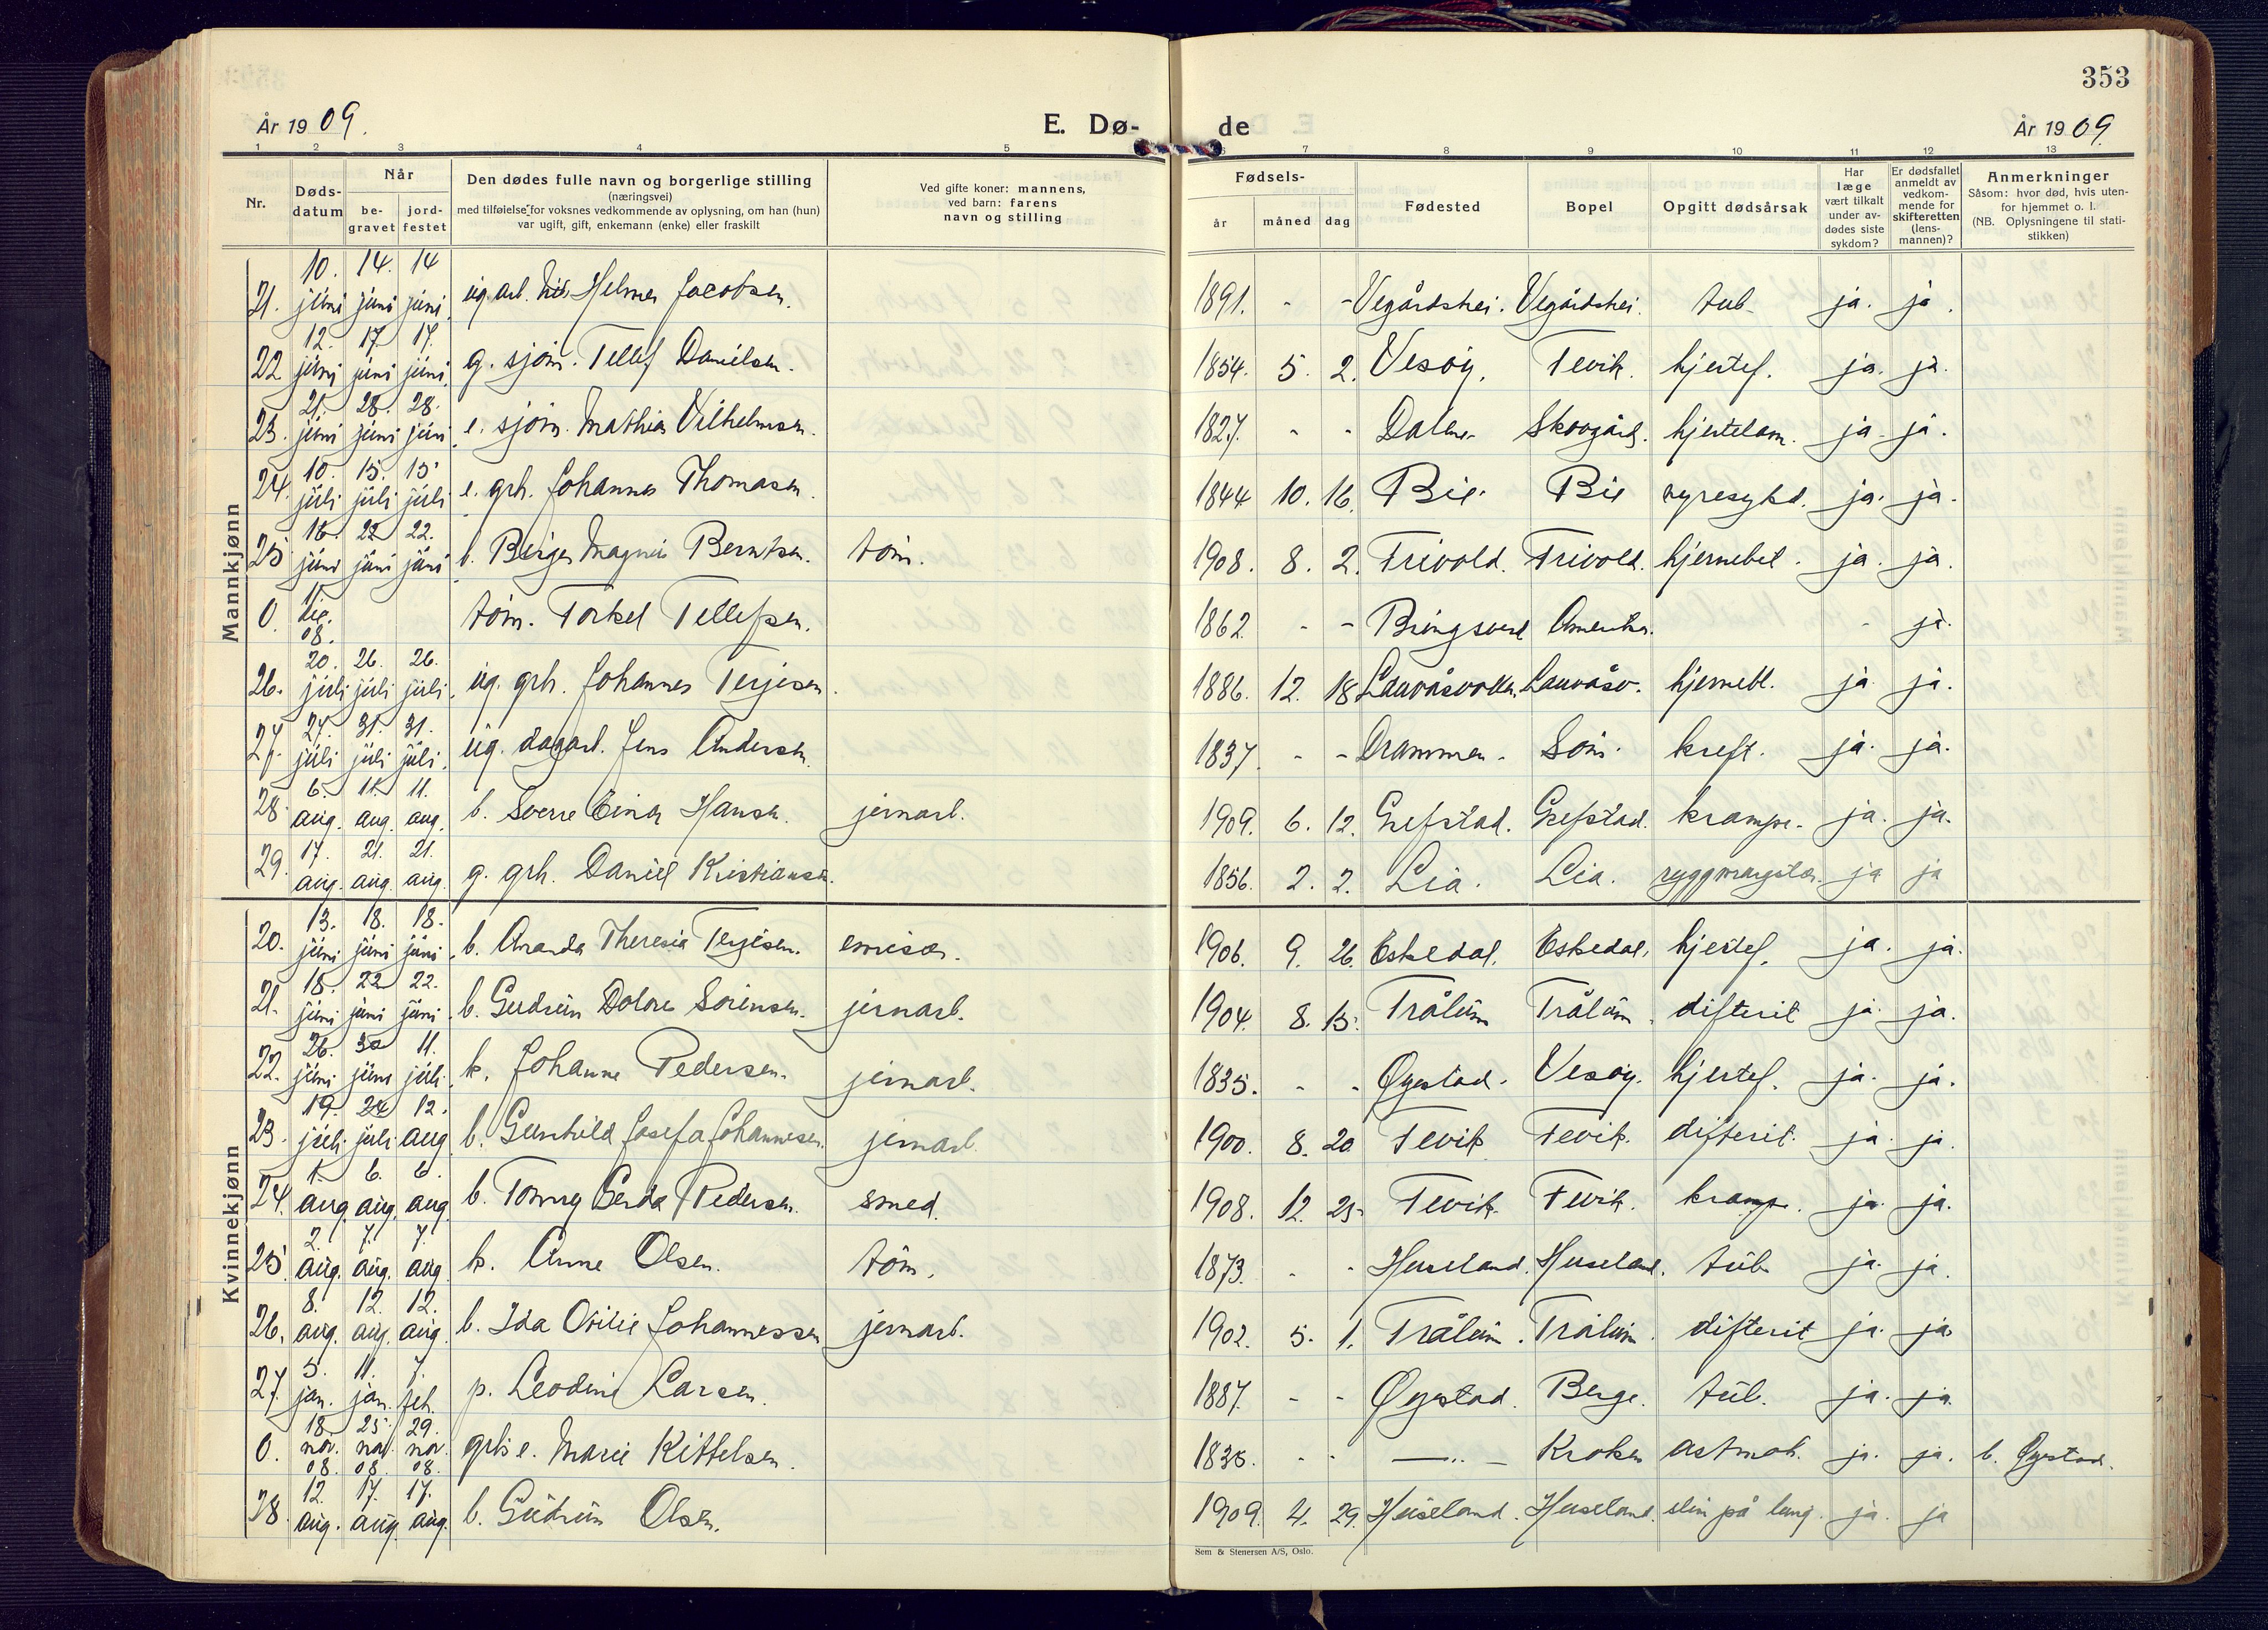 353
År 1909. E. Dø- de År 1909.
1 2 3 4 5 6 7 8 9 10 11 12 13
Nr. Døds-datum Når be-gravet jord-festet Den dødes fulle navn og borgerlige stilling (næringsvei) med tilføielse for voksnes vedkommende av oplysning, om han (hun) var ugift, gift, enkemann (enke) eller fraskilt Ved gifte koner: mannens, ved barn: farens navn og stilling Fødsels- år måned dag Fødested Bopel Opgitt dødsårsak Har læge vært tilkalt under av-dødes siste sykdom? Er dødsfallet anmeldt av vedkom-mende for skifteretten (lens-mannen)? Anmerkninger Såsom: hvor død, hvis uten-for hjemmet o. l. (NB. Oplysningene til stati-stikken)
Mannkjønn
21. 10. juni 14. juni 14 juni ug. arb. Helmer Jacobsen. 1891. - - Vegårdshei. Vegårdshei. tub. ja. ja.
22 12. juni 17 juni 17. juni g. sjøm. Tellef Danielsen. 1854. 5. 2. Vesøy. Fevik. hjertef. ja. ja.
23. 21. juni 28. juni 28. juni e. sjøm. Mathias Vilhelmsen. 1827. - - Dalene Skovgård. hjertelam. ja. ja.
24. 10. juli 15. juli 15. juli e. grh. Johannes Thomasen. 1844 10. 16. Bie. Bie nyresykd. ja. ja.
25 16. juni 22 juni 22. juni b. Birger Magnus Berntsen. tøm. 1908. 8. 2. Frivold. Frivold. hjernebet. ja. ja.
0. 08. tøm. Torkel Tellefsen. 1862. - - Bringsverd Amerika. - ja.
26. 20. juli 26. juli 26. juli ug. grh. Johannes Terjesen. 1886. 12. 18 Lauvåsvollen. Lauvåsv. hjernebl. ja ja.
27. 27. juli 31. juli 31. juli ug. dagarb. Jens Andersen. 1837. - - Drammen. Søm. kreft. ja. ja.
28. 6. aug. 11. aug. 11. aug. b. Sverre Einar Hansen. jernarb. 1909. 6. 12. Grefstad. Grefstad. krampe. ja. ja.
29. 17. aug. 21. aug. 21. aug. g. grh. Daniel Kristiansen. 1856. 2. 2. Lia. Lia. ja ja
Kvinnekjønn
20. 13. juni 18. juni 18. juni b. Amanda Theresia Terjesen. emisær. 1906. 9. 26. Eskedal. Eskedal. hjertef. ja. ja.
21. 18. juni 22 juni 22. juni b. Gudrun Dolores Sørensen. jernarb. 1904. 8. 15. Trålum Trålum. difterit ja. ja.
22. 26. juni 30 juni 11. juli k. Johanne Pedersen. jernarb. 1835. - - Øyestad. Vesøy. hjertef. ja. ja.
23. 19. juli 24 juli 12. aug b. Gunhild Josefa Johannesen. jernarb. 1900. 8. 20. Fevik Fevik. difterit. ja. ja.
24. 1. aug. 6. aug. 6. aug b. Tomny Gerda Pedersen. smed. 1908. 12. 25. Fevik. Fevik. krampe. ja. ja.
25. 2. aug. 7. aug. 7. aug k. Anne Olsen. tøm. 1873. - - Huseland. Huseland. tub. ja. ja.
26. 8. aug. 12. aug. 12. aug. b. Ida Otilie Johannessen jernarb. 1902. 5. 1. Trålum. Trålum. difterit ja. ja.
27. 5. jan. 11. jan. 7. feb. p. Leodine Larsen. 1887. - - Øyestad. Berge. tub. ja. ja.
0. 18 nov. 08. 25 nov. 08. 29. nov. 08. grh's e. Marie Kittelsen. 1835. - - — " — Kroken astmah. ja. ja. b. Øyestad.
28. 12. aug. 17. aug. 17. aug. b. Gudrun Olsen. 1909. 4. 29. Huseland. Huseland. slim på lung. ja. ja
Sem & Stenersen A/S, Oslo.